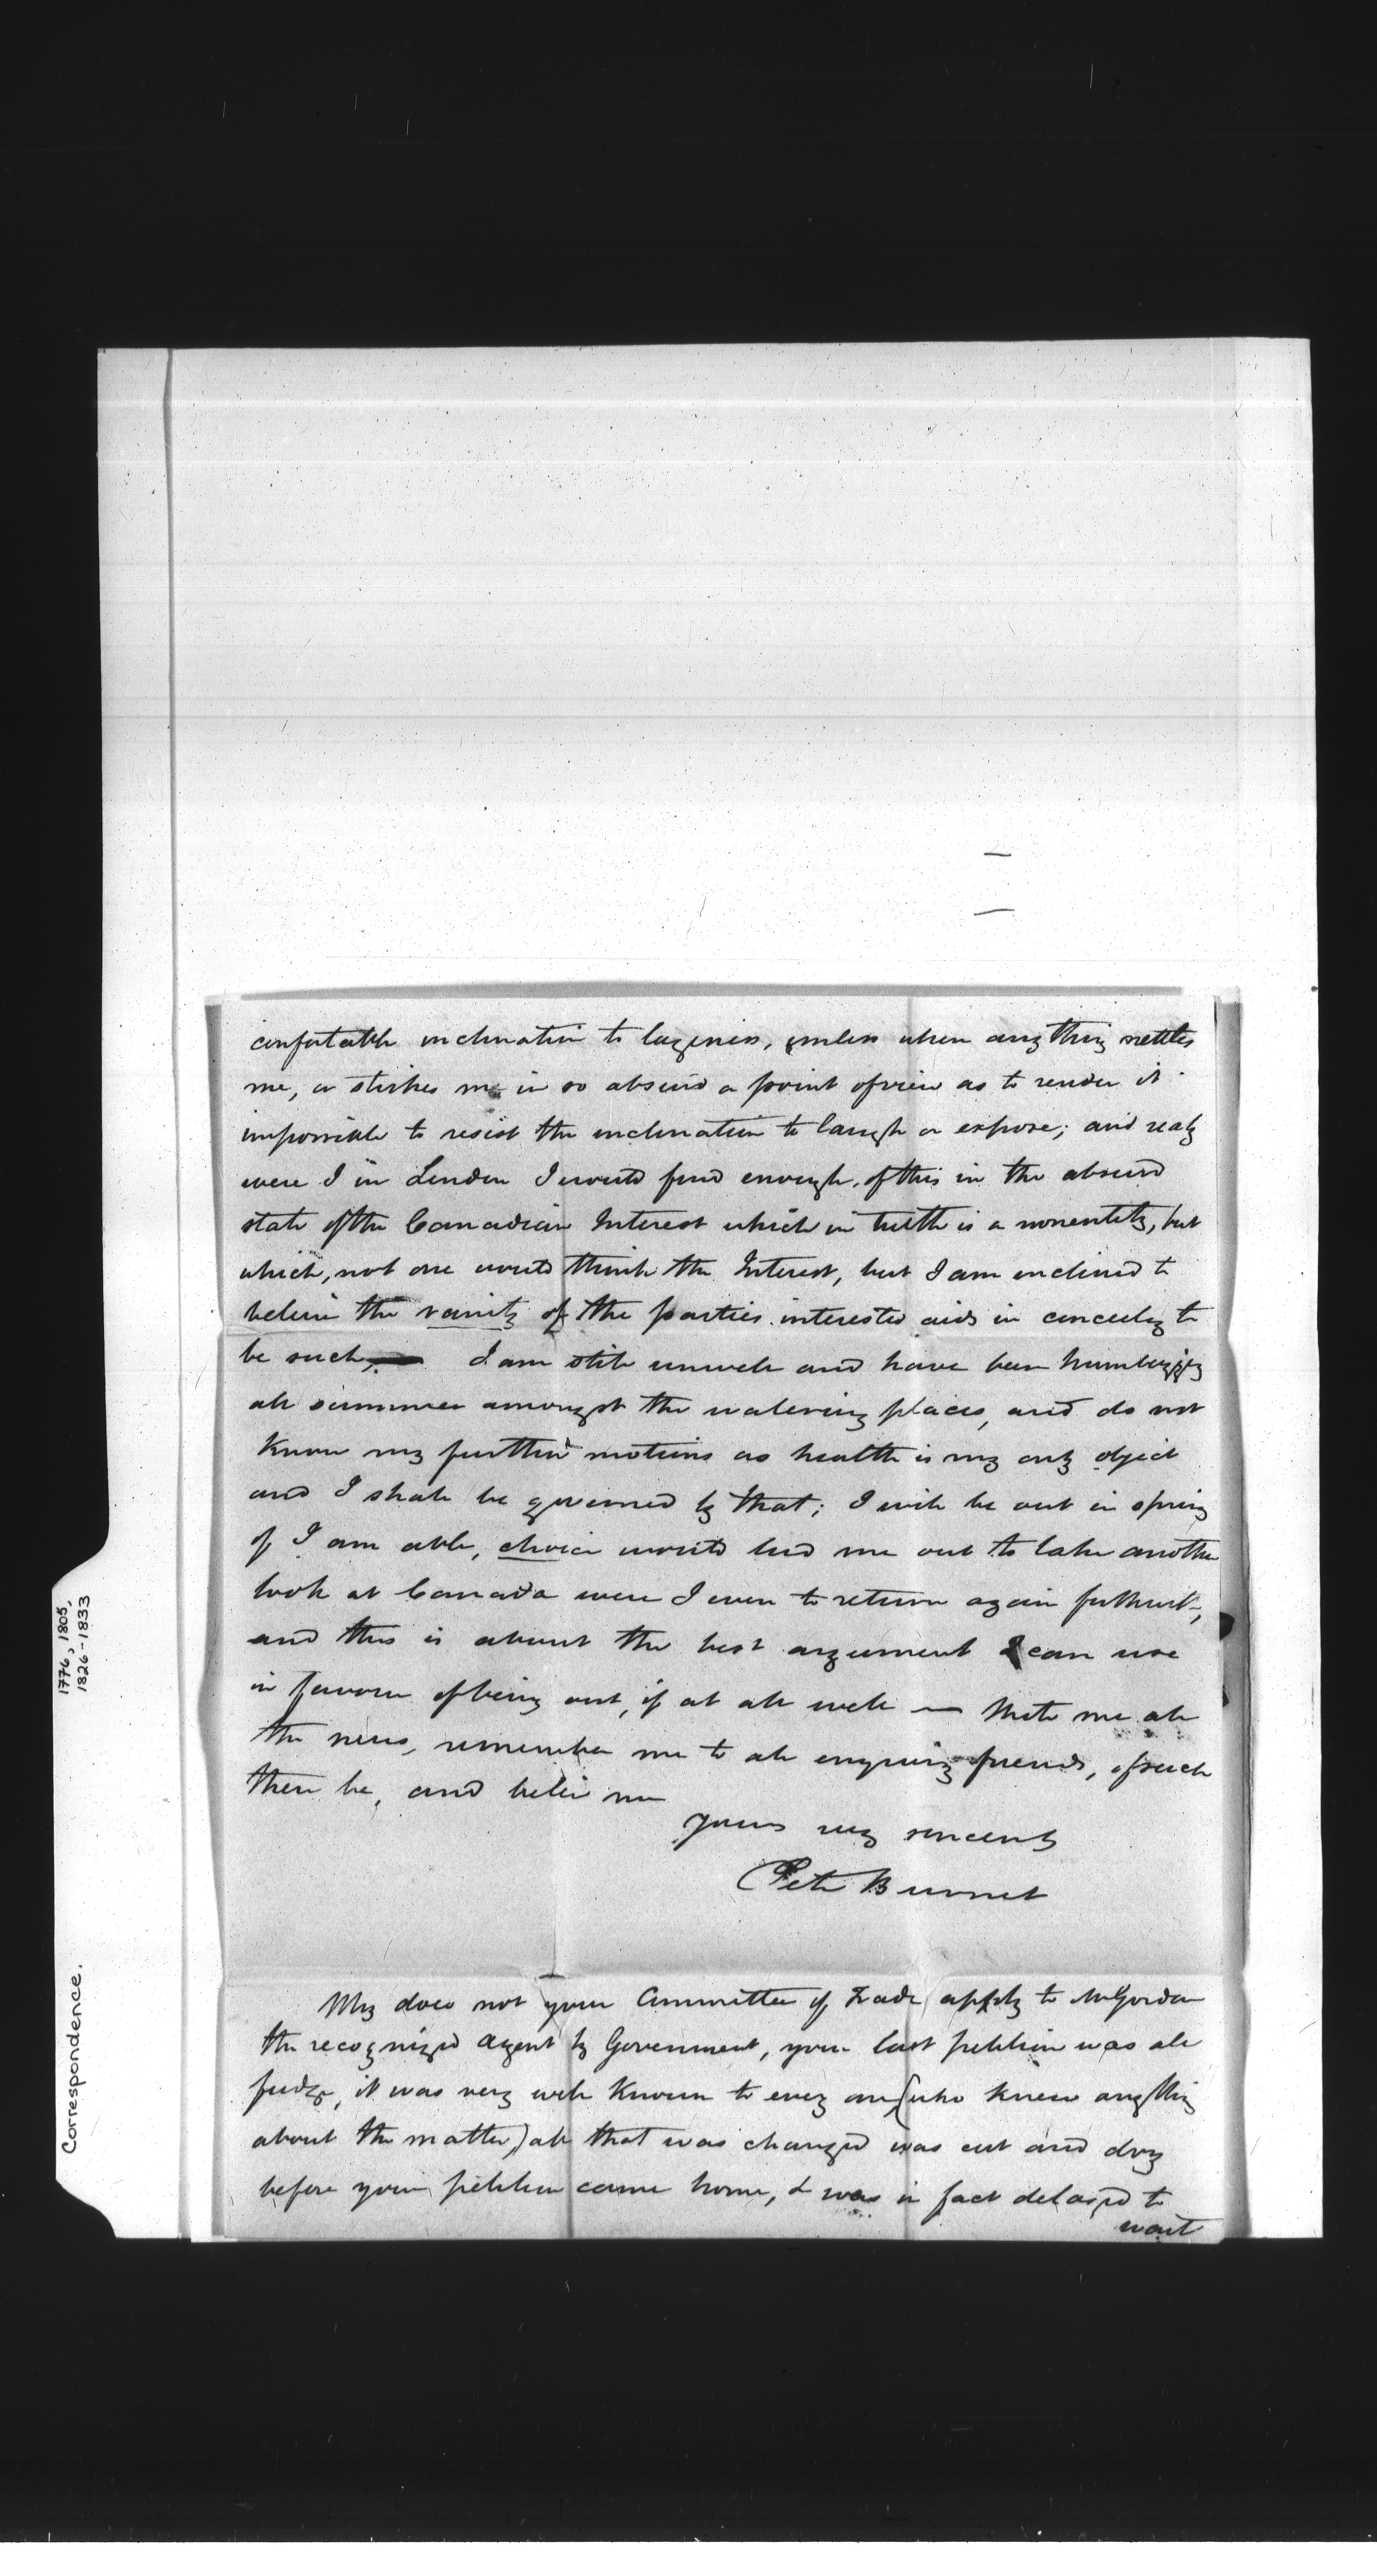 comfortable inclination to laziness, unless when any thing nettles
me, or strikes me in so absurd a point of view as to render it
impossible to resist the inclination to laugh or expose; and realy
were I in London I would find enough of this in the absurd
state of the Canadian Interest which in truth is a nonentity, but
which, not one would think the Interest, but I am inclined to
believe the vanity of the parties interested aids in conceiting to
be such. I am still unwell and have been humbugging
all summer amongst the watering places, and do not
know my further motions as health is my only object
and I shall be governed by that; I will be out in spring
if I am able, choice would lead me out to take another
look at Canada were I even to return again forthwith,
and this is about the best argument I can use
in favour of being out, if at all well — Write me all
the news, remember me to all enquiring friends, if such
there be, and believe me
yours very sincerely
Peter Burnet
Why does not your Committee of Trade apply to Mr Gordon
the recognized Agent by Government, your last petition was all
fudge, it was very well known to every one (who knew anything
about the matter) all that was changed was cut and dry
before your petition came home, & was in fact delayed to
wait
Correspondence.
1776, 1805,
1826-1833